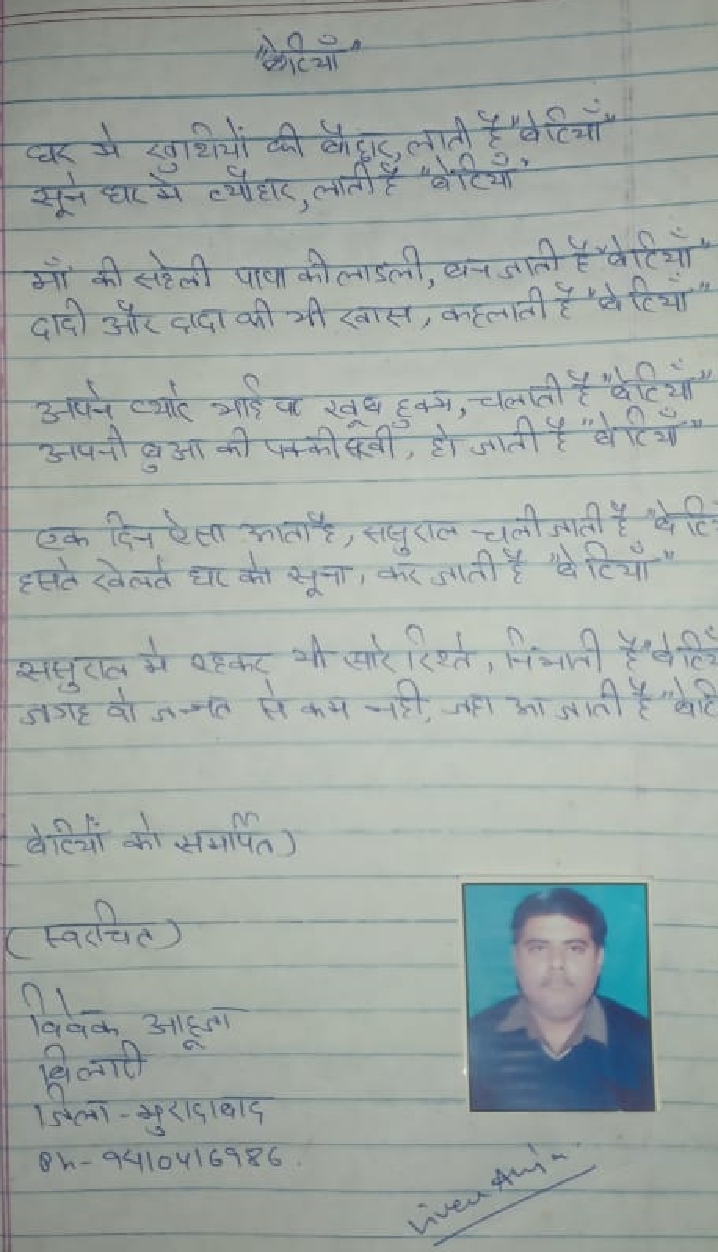 "बेटियाँ"
घर मे खुशियों की बौछार, लाती है "बेटियाँ"
सूने घर मे त्यौहार, लाती है "बेटियाँ"
माँ की सहेली पापा की लाडली, बन जाती है "बेटियाँ"
दादी और दादा की भी खास, कहलाती है "बेटियाँ"
अपने प्यारे भाई पर खूब हुक्म, चलाती है "बेटियाँ"
अपनी बुआ की पक्की सखी, हो जाती है "बेटियाँ"
एक दिन ऐसा आता है, ससुराल चली जाती है "बेटि
हसते खेलते घर को सूना, कर जाती है "बेटियाँ"
ससुराल मे रहकर भी सारे रिश्ते, निभाती है "बेटियाँ
जगह वो जन्नत से कम नही, जहा आ जाती है "बेटि
(बेटियाँ को समर्पित)
(स्वरचित)
विवेक आहूजा
बिलारी
जिला - मुरादाबाद
Ph- 9410416986.
Vivek Ahuja